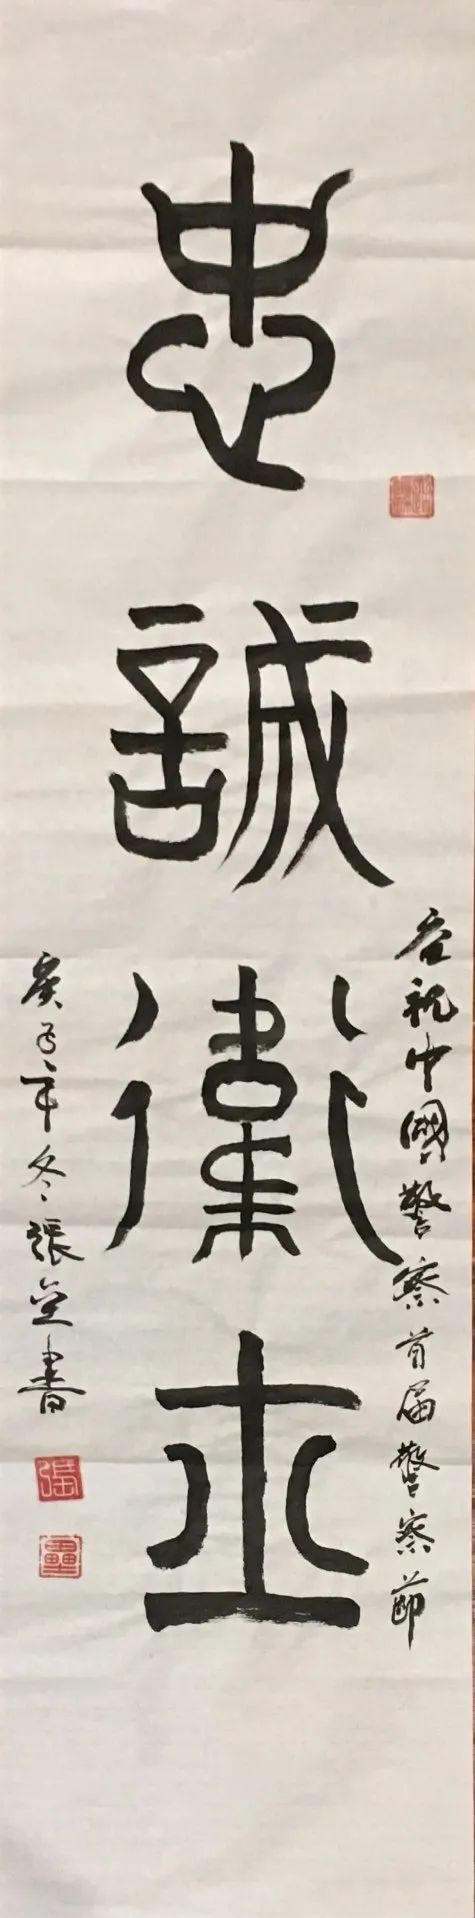 忠誠衛士
慶祝中國警察首届警察節
庚子年冬張垒書
張
壘